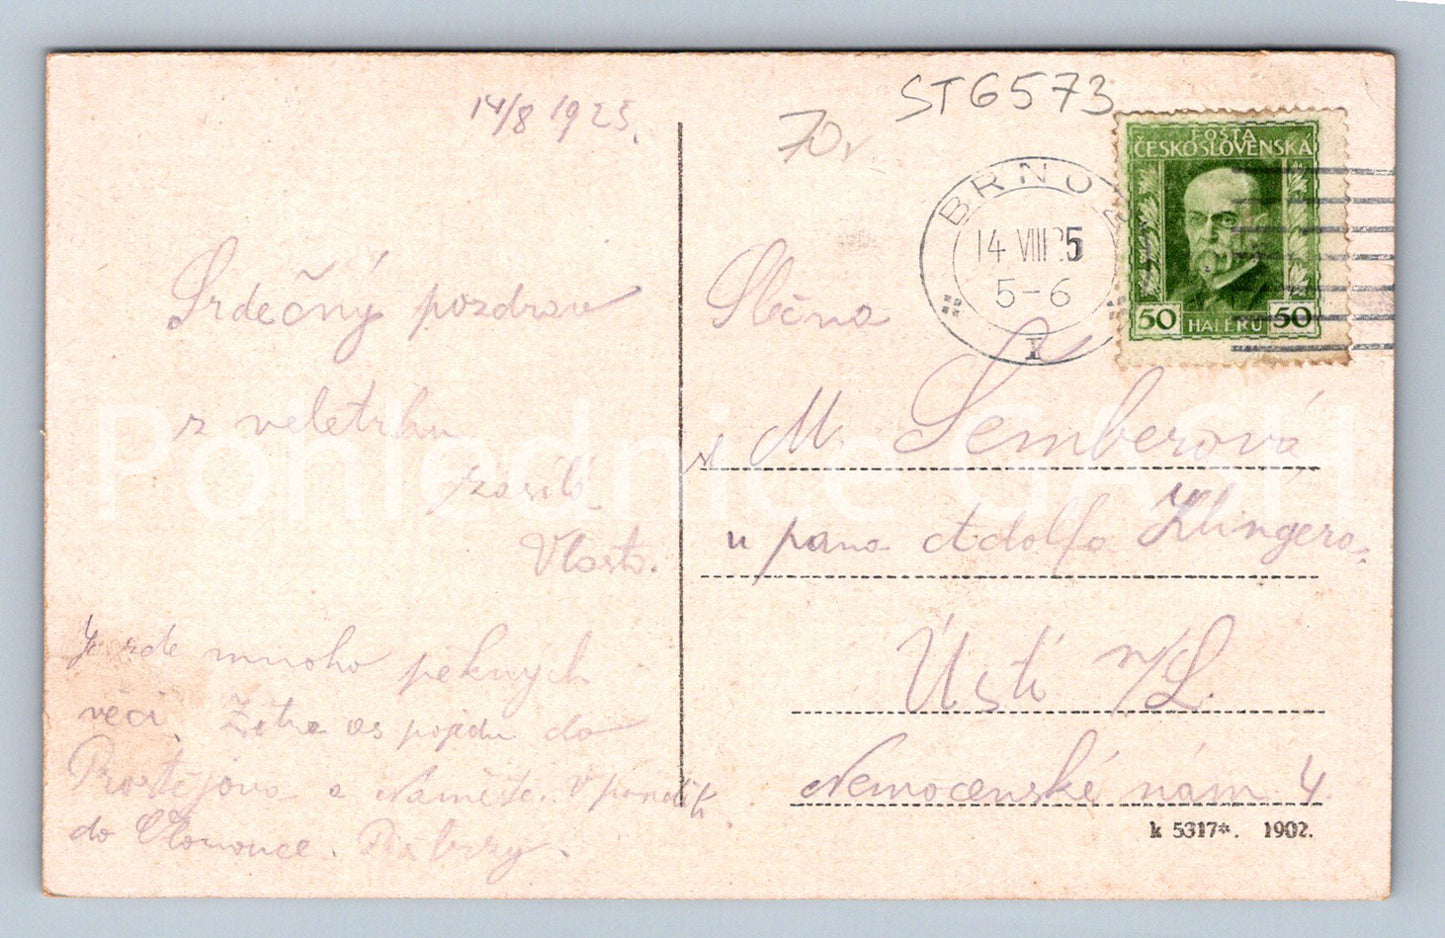 14/8 1925.
Srdečný pozdrav
z veletrhu
zasílá
Vlasta.
Je zde mnoho pěkných
věcí. Zítra as pojedu do
Prostějova a Náměště. V pondělí
do Olomouce. Piš brzy.
70,
ST6573
BRNO
14 VIII 25
5-6
1
POŠTA
ČESKOSLOVENSKÁ
50 HALÉRŮ 50
Slečna
M. Semberová
u pana Adolfa Klingera.
Ústí n/L.
Nemocenské nám 4.
k 5317*. 1902.
Pohlednice GASH